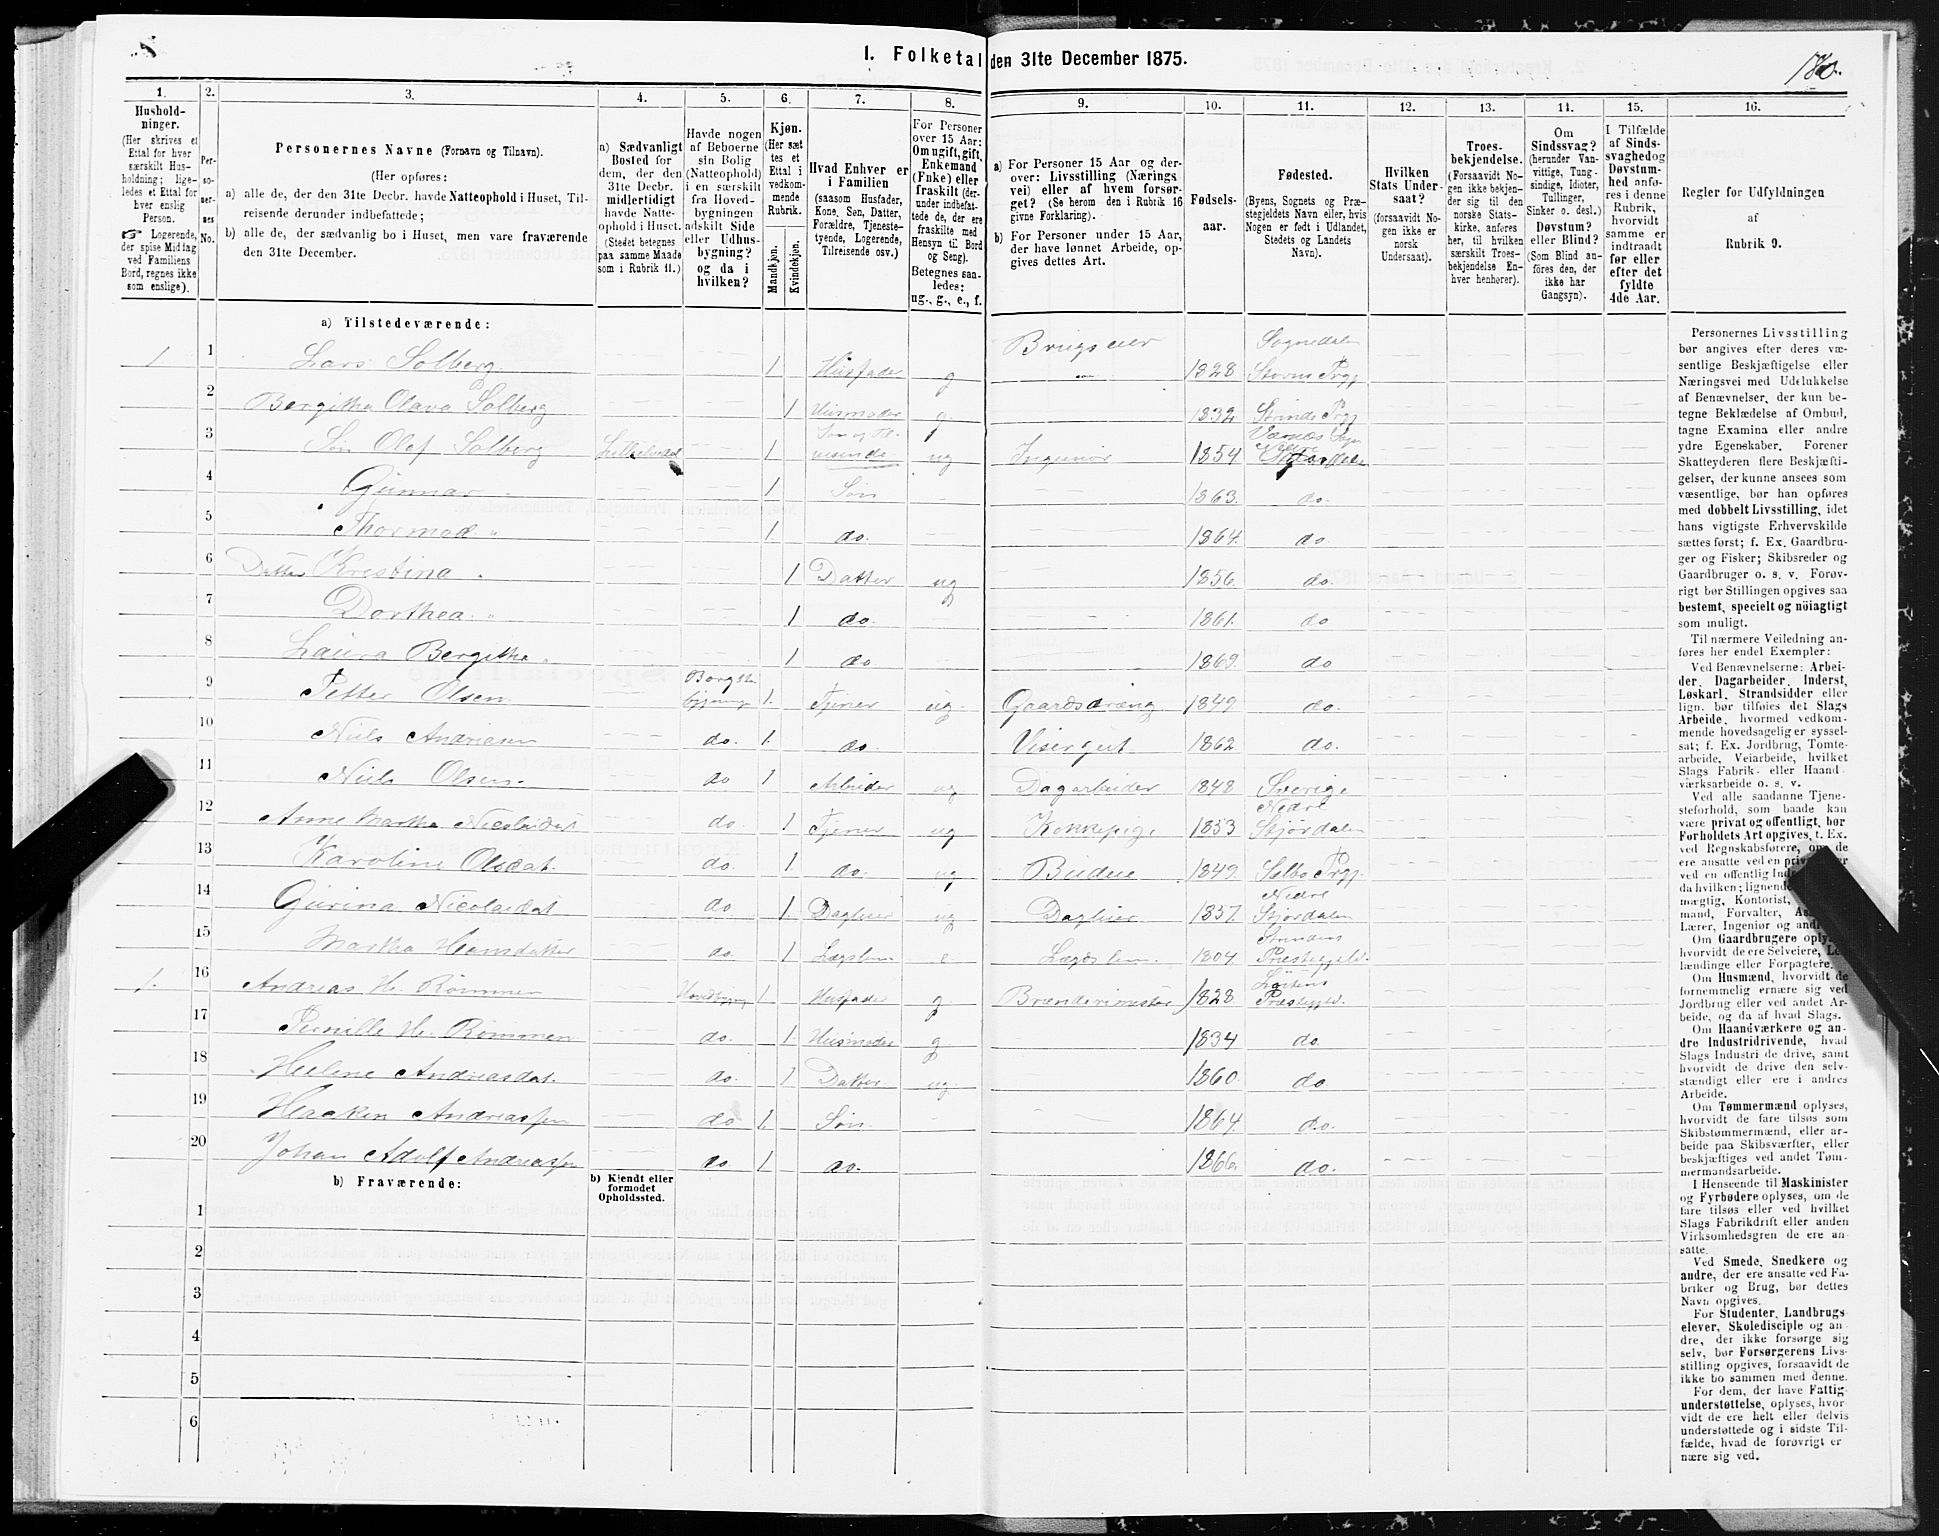 1. Folketal den 31te December 1875.
180.
1.
Hushold-
ninger.
(Her skrives et
Ettal for hver
særskilt Hus-
holdning; lige-
ledes et Ettal for
hver enslig
Person.
☞ Logerende,
der spise Middag
ved Familiens
Bord, regnes ikke
som enslige).
2.
Per-
so-
ner-
nes
No.
3.
Personernes Navne (Fornavn og Tilnavn).
(Her opføres:
a) alle de, der den 31te Decbr. havde Natteophold i Huset, Til-
reisende derunder indbefattede;
b) alle de, der sædvanlig bo i Huset, men vare fraværende
den 31te December.
4.
a) Sædvanligt
Bosted for
dem, der den
31te Decbr.
midlertidigt
havde Natte-
ophold i Huset.
(Stedet betegnes
paa samme Maade
som i Rubrik 11.)
5.
Havde nogen
af Beboerne
sin Bolig
(Natteophold)
i en særskilt
fra Hoved-
bygningen
adskilt Side
eller Udhus-
bygning?
og da i
hvilken?
6.
Kjøn.
(Her sæt-
tes et
Ettal i
vedkom-
mende
Rubrik.
Mandkjøn.
Kvindekjøn.
7.
Hvad Enhver er
i Familien
(saasom Husfader,
Kone, Søn, Datter,
Forældre, Tjeneste-
tyende, Logerende,
Tilreisende osv.)
8.
For Personer
over 15 Aar:
Om ugift, gift,
Enkemand
(Enke) eller
fraskilt (der-
under indbefat-
tede de, der ere
fraskilte med
Hensyn til Bord
og Seng).
Betegnes saa-
ledes:
ug., g., e., f.
9.
a) For Personer 15 Aar og der-
over: Livsstilling (Nærings-
vei) eller af hvem forsør-
get? (Se herom den i Rubrik 16
givne Forklaring).
b) For Personer under 15 Aar,
der have lønnet Arbeide, op-
gives dettes Art.
10.
Fødsels-
aar.
11.
Fødested.
(Byens, Sognets og Præ-
stegjeldets Navn eller, hvis
Nogen er født i Udlandet,
Stedets og Landets
Navn).
12.
Hvilken
Stats Under-
saat?
(forsaavidt No-
gen ikke er
norsk
Undersaat).
13.
Troes-
bekjendelse.
(Forsaavidt No-
gen ikke bekjen-
der sig til den
norske Stats-
kirke, anføres
her, til hvilken
særskilt Troes-
bekjendelse En-
hver henhører).
14.
Om
Sindssvag?
(herunder Van-
vittige, Tung-
sindige, Idioter,
Tullinger,
Sinker o. desl.)
Døvstum?
eller Blind?
(Som Blind an-
føres den, der
ikke har
Gangsyn).
15.
I Tilfælde
af Sinds-
svaghed og
Døvstum-
hed anfø-
res i denne
Rubrik,
hvorvidt
samme er
indtraadt
før eller
efter det
fyldte
4de Aar.
16.
Regler for Udfyldningen
af
Rubrik 9.
a) Tilstedeværende:
1 1 Lars Solberg 1 Husfader g Brugseier 1828 Sognedalen Storens Prgj
2 Bergitha Olava Solberg 1 Husmoder g. 1832 Strinda Prgj
3 Søn Olaf Solberg 1 ug Ingeniør 1854
4 Gunnar 1 Søn 1863. do.
5 Thormod " 1 do. 1864. do
6 Datter Kristina " 1 Datter ug 1856. do
7 Dorthea " 1 do. 1861. do
8 Laura Bergitha " 1 do 1869. do
9 Petter Olsen 1. Tjener ug. Gaardsdreng 1849. do.
10 Niels Andreasen do. 1. do. Visergut 1862 do.
11 Niels Olsen. do 1 Arbeider ug Dagarbeider 1848 Sverige
12 Anne Martha Nicolaidat do. 1 Tjener ug Kokkepige 1853 Nedre Stjørdalen
13 Karoline Olsdat. do. 1. do. ug Budeie 1849. Selbo Prgj.
14 Gurina Nicolaidat do 1. Dagleier ug Dagleier 1857. Nedre Stjørdalen
15 Martha Hansdatter do. 1 Lægslem e. Lægdslem. 1804 Strindens Præstegjeld.
1. 16 Andreas H. Rømmen Hovedbygn 1 Husfader g. Brænderimester 1828 Løitens Præstegjeld.
17 Pernille H. Rømmen do. 1. Husmoder g. 1834 do.
18 Helene Andreasdat. do. 1 Datter ug. 1860. do
19 Haaken Andreassen do 1. Søn. 1864. do.
20 Johan Adolf Andreassen do. 1 do. 1866. do.
b) Fraværende:
b) Kjendt eller
formodet
Opholdssted.
1
2
3
4
5
6
Personernes Livsstilling
bør angives efter deres væ-
sentlige Beskjæftigelse eller
Næringsvei med Udelukkelse
af Benævnelser, der kun be-
tegne Beklædelse af Ombud,
tagne Examina eller andre
ydre Egenskaber. Forener
Skatteyderen flere Beskjæfti-
gelser, der kunne ansees som
væsentlige, bør han opføres
med dobbelt Livsstilling, idet
hans vigtigste Erhvervskilde
sættes først; f. Ex. Gaardbru-
ger og Fisker; Skibsreder og
Gaardbruger o. s. v. Forøv-
rigt bør Stillingen opgives saa
bestemt, specielt og nöiagtigt
som muligt.
Til nærmere Veiledning an-
føres her endel Exempler:
Ved Benævnelserne: Arbei-
der, Dagarbeider, Inderst,
Løskarl, Strandsidder eller
lign. bør tilføies det Slags
Arbeide, hvormed vedkom-
mende hovedsagelig er syssel-
sat; f. Ex. Jordbrug, Tomte-
arbeide, Veiarbeide, hvilket
Slags Fabrik- eller Haand-
værksarbeide o. s. v.
Ved alle saadanne Tjene-
steforhold, som baade kan
være privat og offentligt, bør
Forholdets Art opgives, t. Ex.
ved Regnskabsførere, om de
ere ansatte ved en
ved en offentlig
da hvilken; lignende
mægtig, Kontorist,
mand, Forvalter,
Lærer, Ingeniør og
Om Gaardbrugere
hvorvidt de ere Selveiere,
lændinge eller Forpagtere.
Om Husmænd, hvorvidt de
fornemmelig ernære sig ved
Jordbrug eller ved andet Ar-
beide, og da af hvad Slags.
Om Haandværkere og an-
dre Industridrivende, hvad
Slags Industri de drive, samt
hvorvidt de drive den selv-
stændigt eller ere i andres
Arbeide.
Om Tømmermænd oplyses,
hvorvidt de fare tilsøs som
Skibstømmermænd, eller ar-
beide paa Skibsværfter, eller
beskjæftiges ved andet Tøm-
mermandsarbeide.
I Henseende til Maskinister
og Fyrbødere oplyses, om de
fare tilsøs eller ved hvilket
Slags Fabrikdrift eller anden
Virksomhedsgren de ere an-
satte.
Ved Smede, Snedkere og
andre, der ere ansatte ved Fa-
briker og Brug, bør dettes
Navn opgives.
For Studenter, Landbrugs-
elever, Skoledisciple og an-
dre, der ikke forsørge sig
selv, bør Forsørgerens Livs-
stilling opgives, forsaavidt de
ikke bo sammen med denne.
For dem, der have Fattig-
understøttelse, oplyses, hvor-
vidt de ere helt eller delvis
understøttede og i sidste Til-
fælde, hvad de forøvrigt er
nære sig ved.